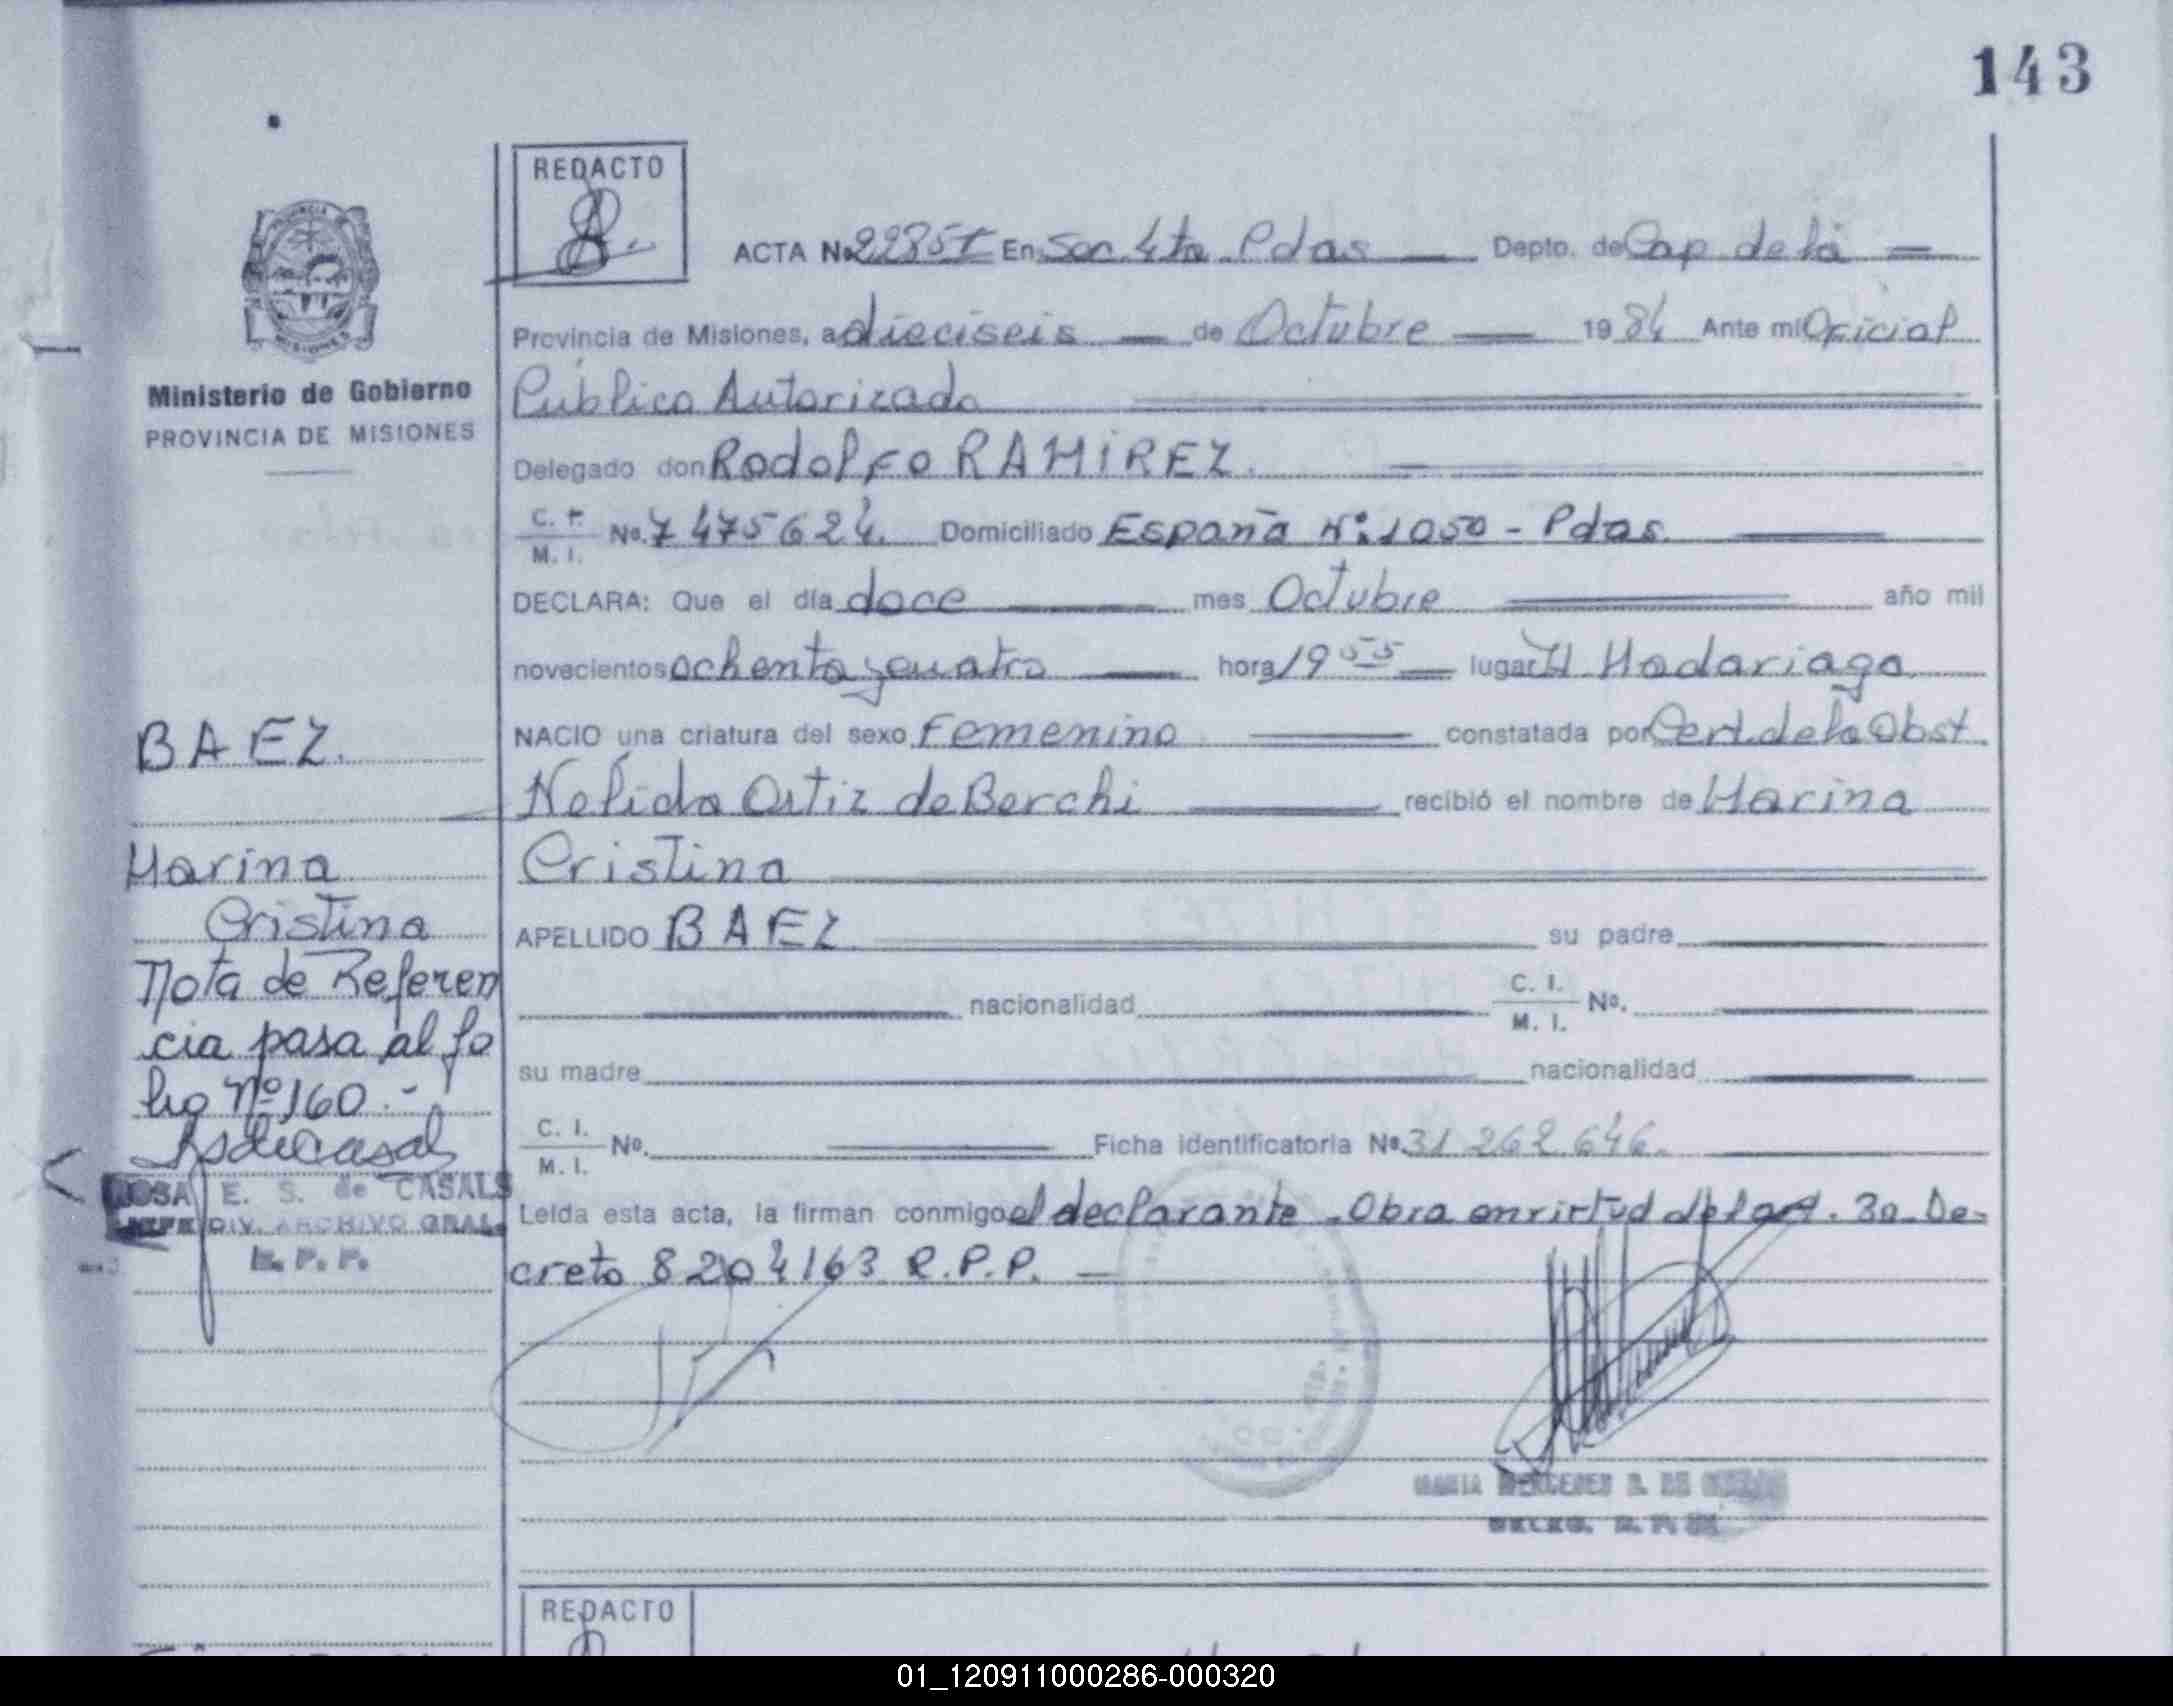 143
REDACTO
ACTA No 2285I En Sec. 4ta. Pdas — Depto. de Cap. de la
Provincia de Misiones, a dieciseis — de Octubre — 1984 Ante mi Oficial
Ministerio de Gobierno
PROVINCIA DE MISIONES
Público Autorizado
Delegado don Rodolfo RAMIREZ.
C. I. M. I. No. 7475624. Domiciliado España Nº: 1050 - Pdas.
DECLARA: Que el día doce — mes Octubre — año mil
novecientos ochenta y cuatro — hora 19 55 — lugar H. Madariaga
NACIO una criatura del sexo Femenino — constatada por Cert. de la Obst.
Nelida Ortiz de Berchi — recibió el nombre de Marina
Cristina
APELLIDO BAEZ su padre
nacionalidad C. I. M. I. No.
su madre nacionalidad
C. I. M. I. No. Ficha identificatoria No. 31 262 646.
Leída esta acta, la firman conmigo el declarante. Obra en virtud del art. 30 De-
creto 8204/63 R.P.P. —
BAEZ.
Marina
Cristina
Nota de Referen
cia pasa al fo
lio Nº 160.-
ROSA E. S. de CASALS
JEFE DIV. ARCHIVO GRAL.
R. P. P.
MARIA MERCEDES B. DE
DELEG. R. P.
REDACTO
01_120911000286-000320